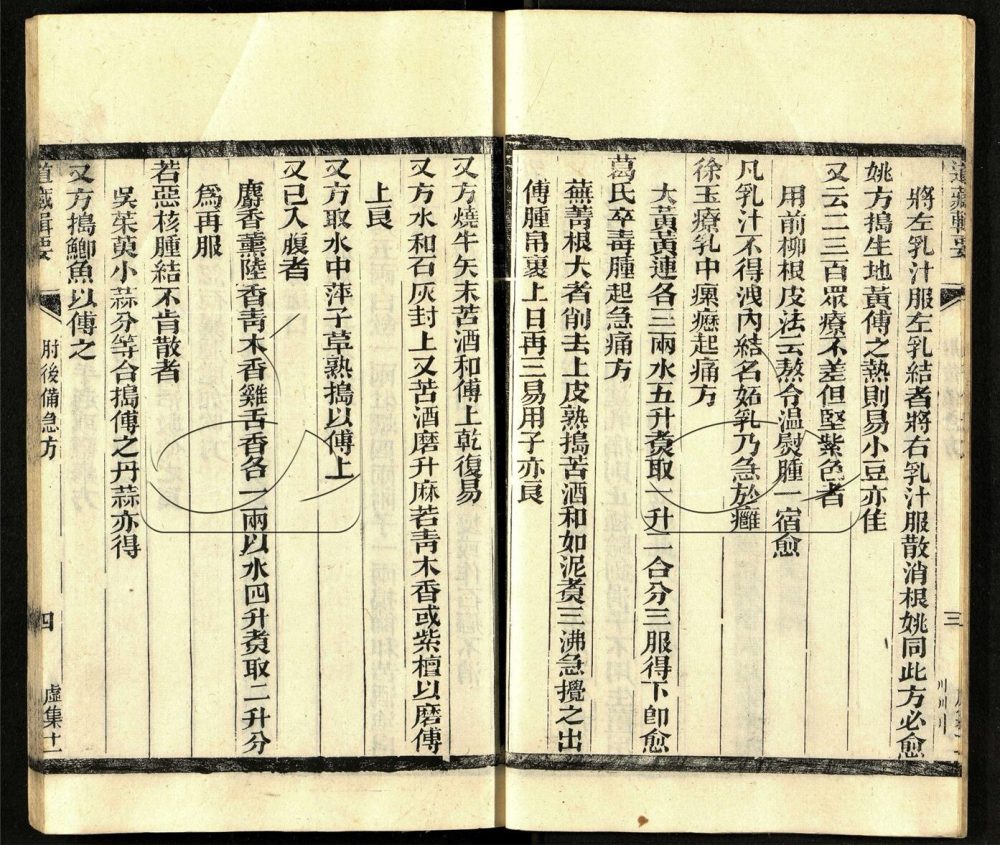 道藏輯要
三
將左乳汁服左乳結者將右乳汁服散消根姚同此方必愈
姚方搗生地黃傅之熱則易小豆亦佳
又云二三百眾療不差但堅紫色者
用前柳根皮法云熬令温熨腫一宿愈
凡乳汁不得洩內結名妬乳乃急於癰
徐玉療乳中瘰癧起痛方
大黃黃連各三兩水五升煑取一升二合分三服得下卽愈
葛氏卒毒腫起急痛方
蕪菁根大者削去上皮熟搗苦酒和如泥煑三沸急攪之出
傅腫帛裹上日再三易用子亦良
又方燒牛矢末苦酒和傅上乾復易
又方水和石灰封上又苦酒磨升麻若青木香或紫檀以磨傅
上良
又方取水中萍子草熟搗以傅上
又已入腹者
麝香薰陸香青木香雞舌香各一兩以水四升煑取二升分
爲再服
若惡核腫結不肯散者
吳茱萸小蒜分等合搗傅之丹蒜亦得
又方搗鯽魚以傅之
道藏輯要
肘後備急方
四
虛集十一